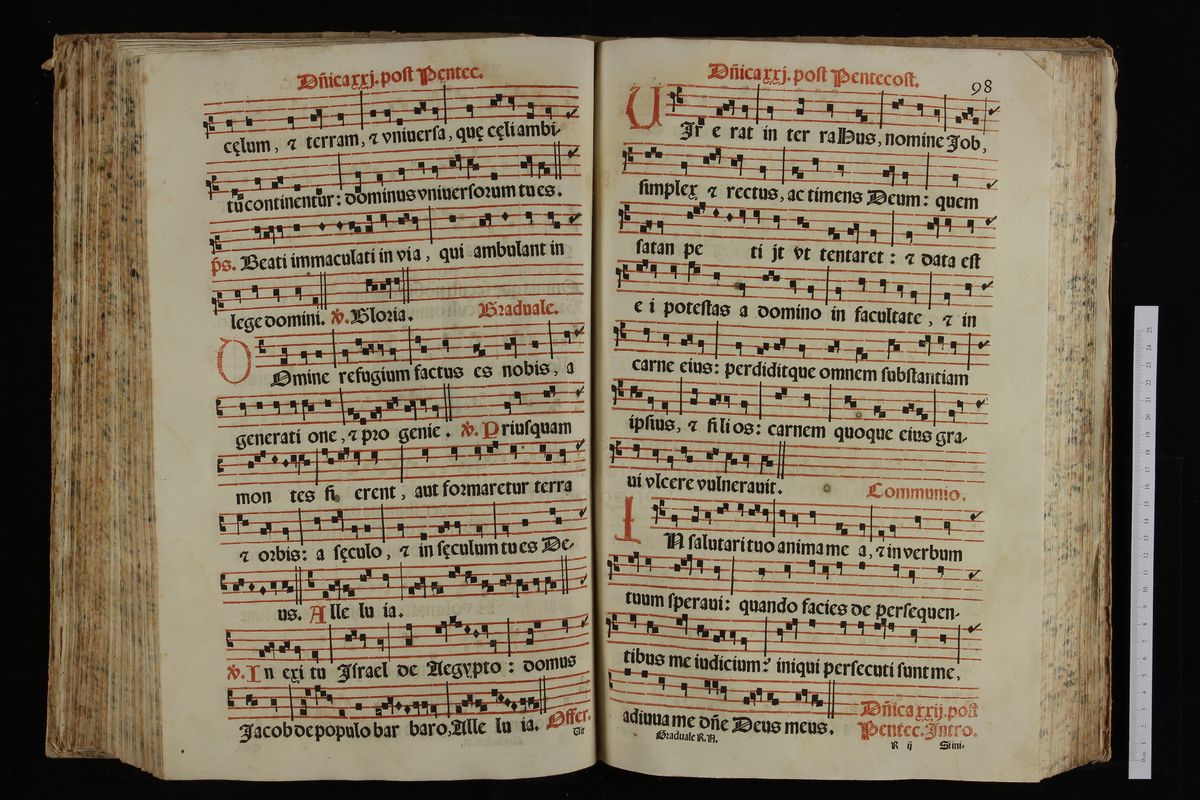 Dñica xxj. post Pentec.
cęlum, ⁊ terram, ⁊ vniuersa, quę cęli ambi-
tu continentur: dominus vniuersorum tu es.
ps. Beati immaculati in via, qui ambulant in
lege domini. ℣. Gloria. Graduale.
DOmine refugium factus es nobis, a
generati one, ⁊ pro genie. ℣. Priusquam
mon tes fi erent, aut formaretur terra
⁊ orbis: a sęculo, ⁊ in sęculum tu es De-
us. Alle lu ia.
℣. In exi tu Israel de Aegypto: domus
Jacob de populo bar baro, Alle lu ia. Offer.
Vir
Dñica xxj. post Pentecost. 98
VIr e rat in ter ra Hus, nomine Job,
simplex ⁊ rectus, ac timens Deum: quem
satan pe ti jt vt tentaret: ⁊ data est
e i potestas a domino in facultate, ⁊ in
carne eius: perdiditque omnem substantiam
ipsius, ⁊ fili os: carnem quoque eius gra-
ui vlcere vulnerauit. Communio.
IN salutari tuo anima me a, ⁊ in verbum
tuum speraui: quando facies de persequen-
tibus me iudicium? iniqui persecuti sunt me,
adiuua me dñe Deus meus. Dñica xxij. post
Pentec. Intro.
Graduale R.A. R ij Si ini-